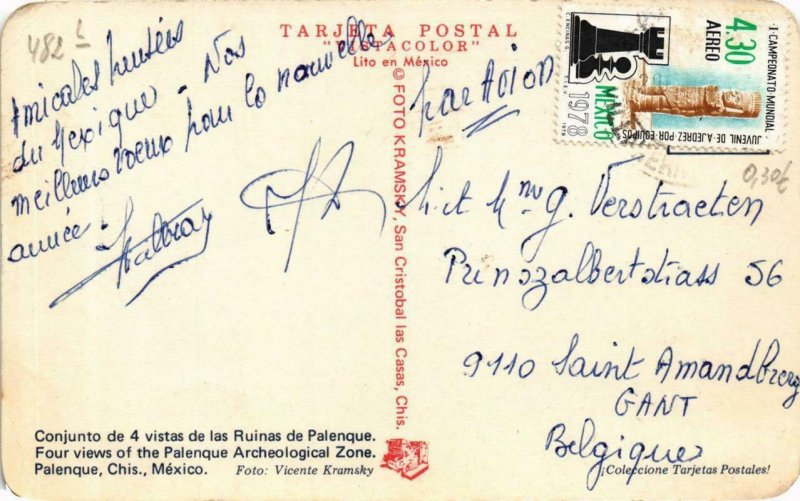 482 L
TARJETA POSTAL
"VISTACOLOR"
Lito en México
Amicales pensées
du Mexique - Nos
meilleurs voeux pour la nouvelle
année.
© FOTO KRAMSKY, San Cristobal las Casas, Chis.
par Avion
I-CAMPEONATO-MUNDIAL
JUVENIL-DE-AJEDREZ-POR-EQUIPOS
4.30
AEREO
MEXICO
1978
0,30€
G. Verstraeten
Prinszalbertstrass 56
9110 Saint Amandberg
GANT
Belgique
Conjunto de 4 vistas de las Ruinas de Palenque.
Four views of the Palenque Archeological Zone.
Palenque, Chis., México.
Foto: Vicente Kramsky
¡Coleccione Tarjetas Postales!